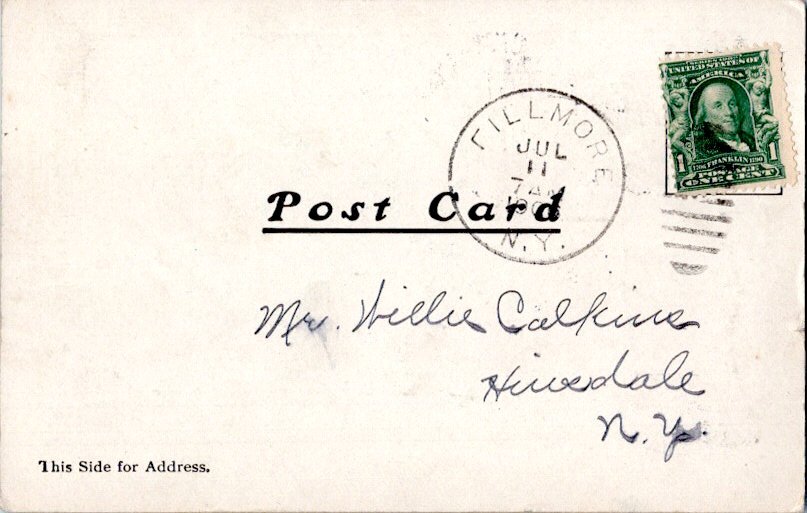 SERIES 1902
UNITED STATES OF
AMERICA
1 1706 FRANKLIN 1790 1
POSTAGE
ONE CENT
FILLMORE
JUL
11
7 AM
N.Y.
Post Card
Mr. Willie Calkins
Hinsdale
N.Y.
This Side for Address.